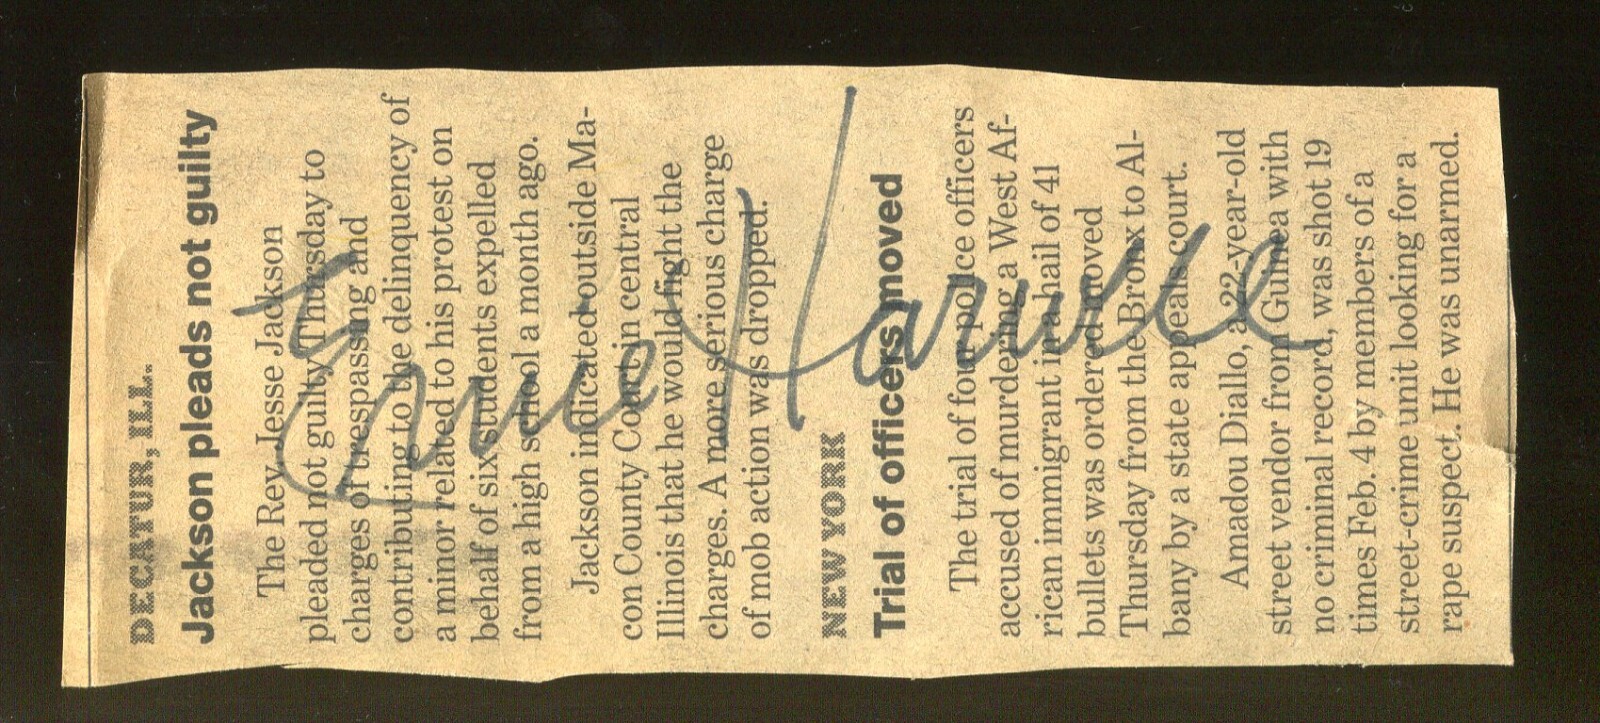 DECATUR, ILL.
Jackson pleads not guilty
The Rev. Jesse Jackson
pleaded not guilty Thursday to
charges of trespassing and
contributing to the delinquency of
a minor related to his protest on
behalf of six students expelled
from a high school a month ago.
Jackson indicated outside Ma-
con County Court in central
Illinois that he would fight the
charges. A more serious charge
of mob action was dropped.
NEW YORK
Trial of officers moved
The trial of four police officers
accused of murdering a West Af-
rican immigrant in a hail of 41
bullets was ordered moved
Thursday from the Bronx to Al-
bany by a state appeals court.
Amadou Diallo, a 22-year-old
street vendor from Guinea with
no criminal record, was shot 19
times Feb. 4 by members of a
street-crime unit looking for a
rape suspect. He was unarmed.
Ernie Harwell